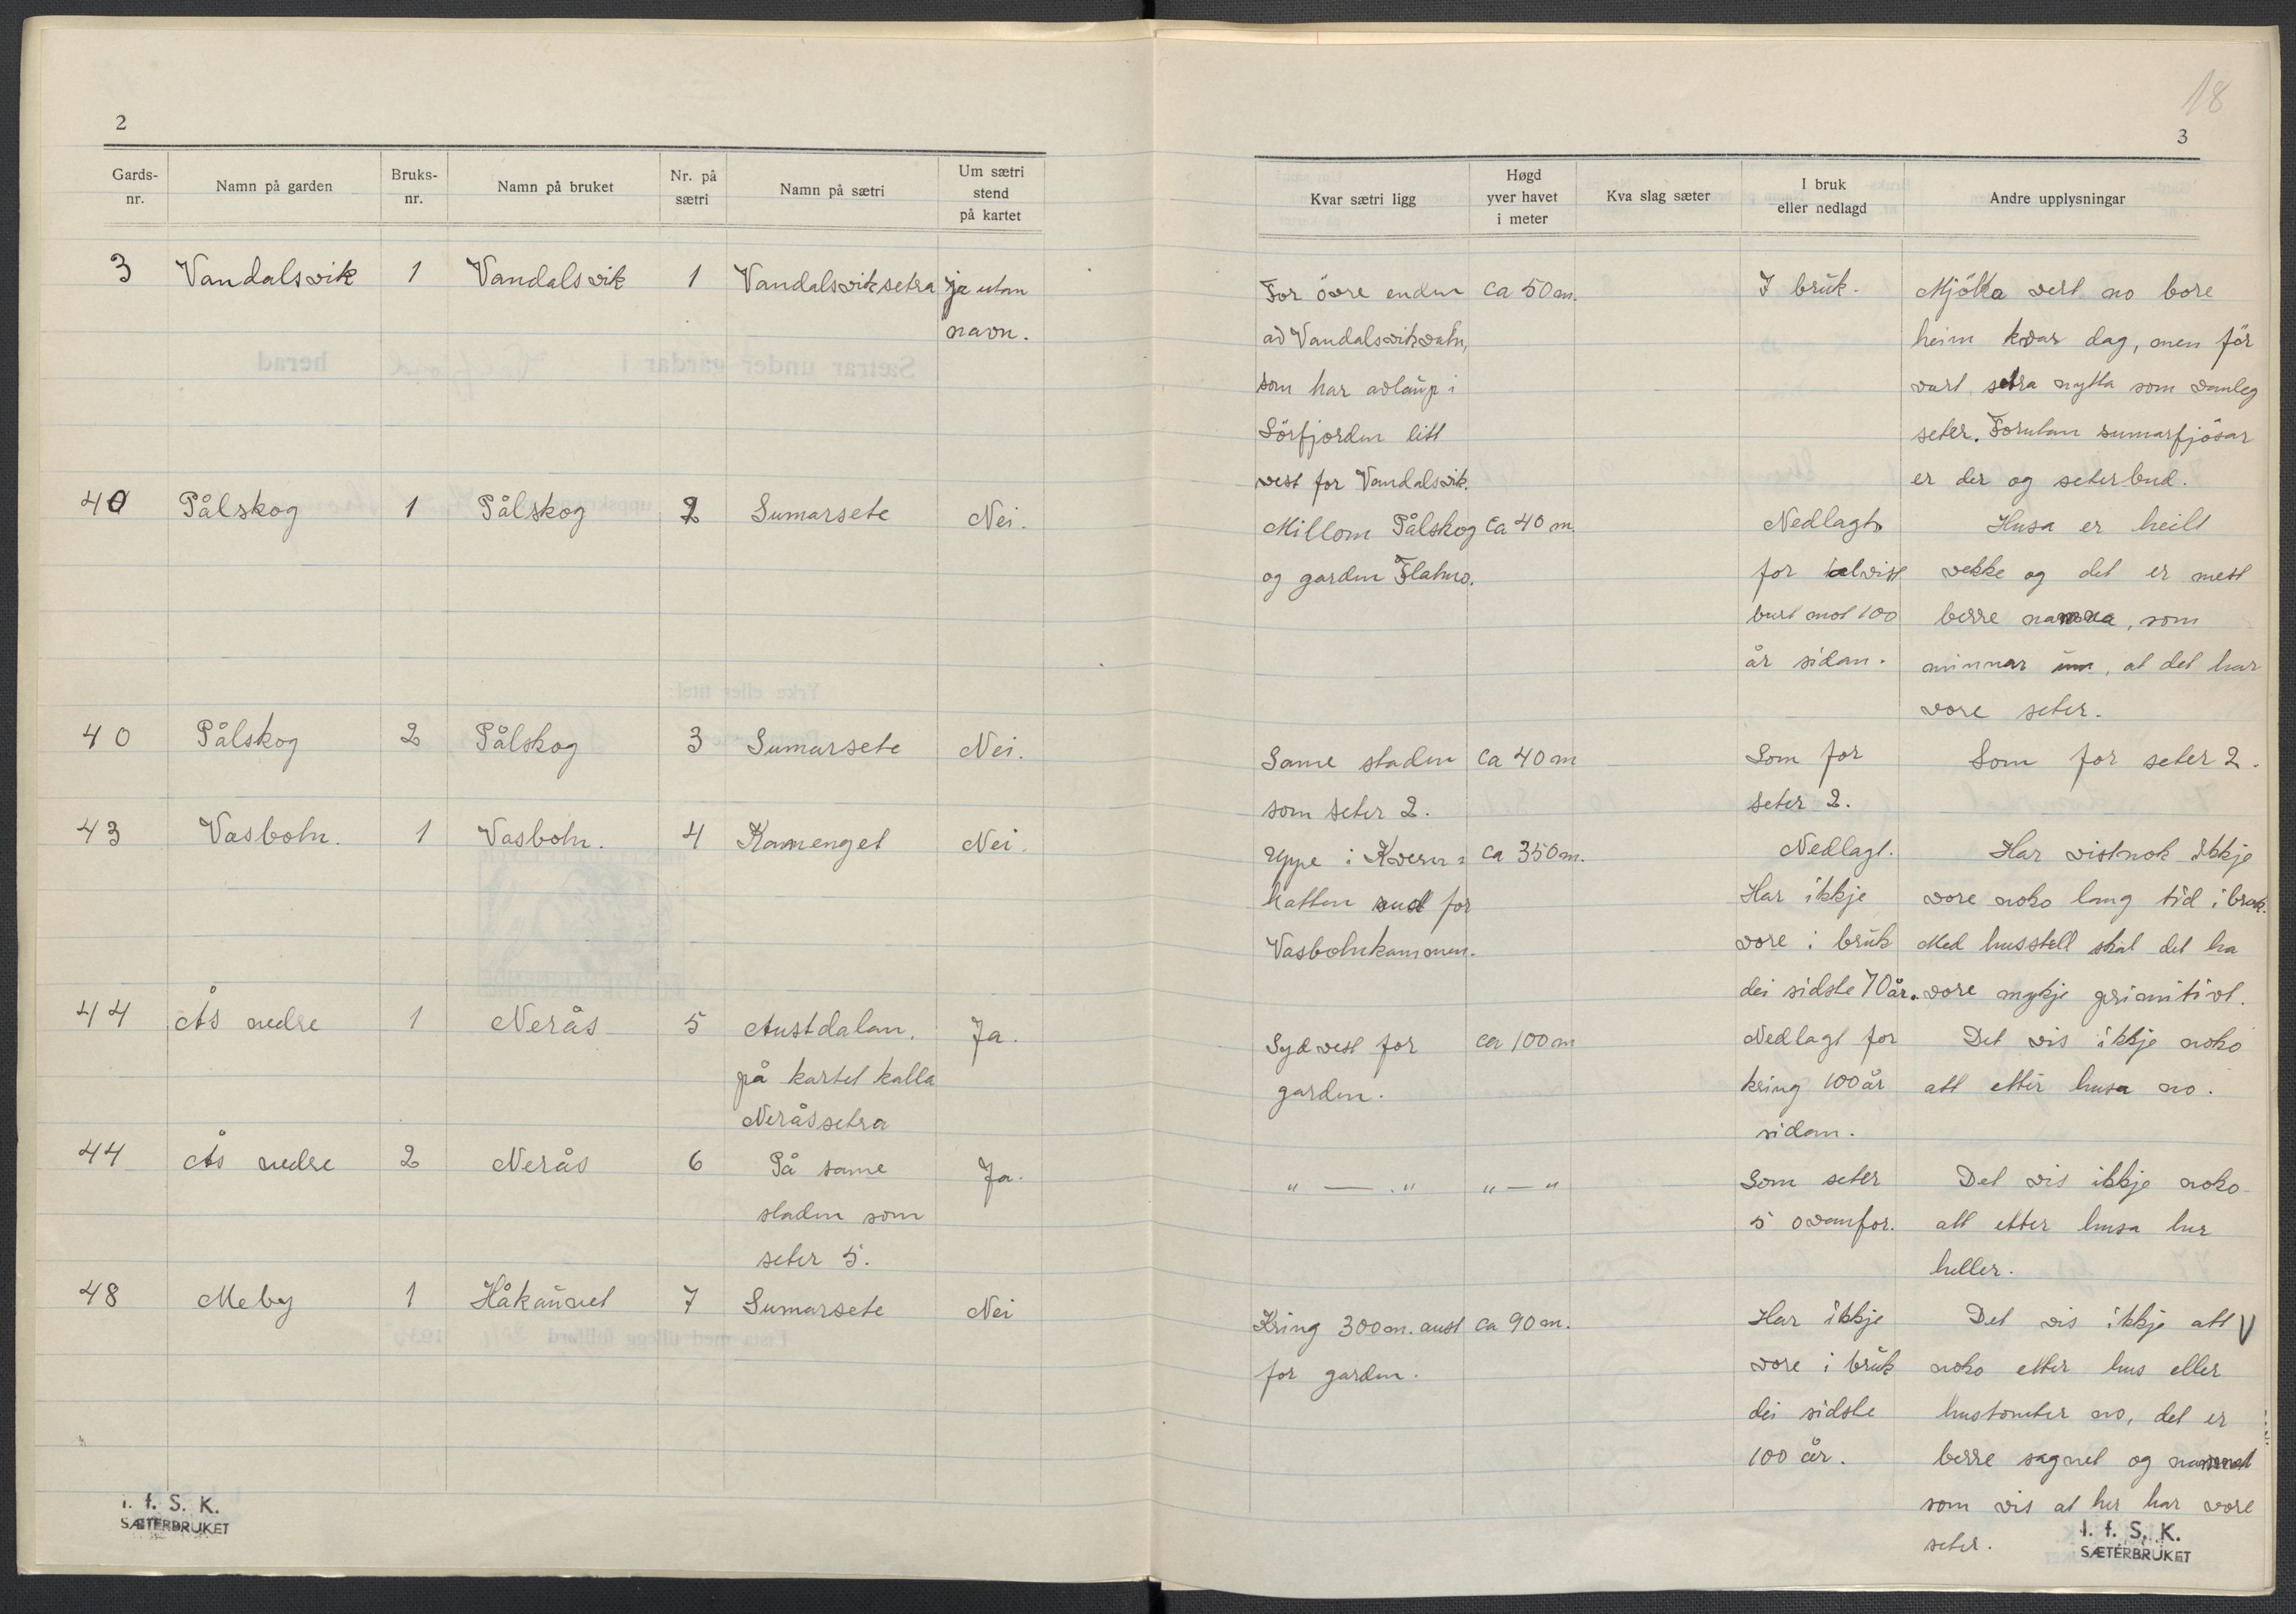 2
Gards-nr. Namn på garden Bruks-nr. Namn på bruket Nr. på sætri Namn på sætri Um sætri stend på kartet
3 Vandalsvik 1 Vandalsvik 1 Vandalsviksetra ja utan
navn.
40 Pålskog 1 Pålskog 2 Sumarsete Nei.
40 Pålskog 2 Pålskog 3 Sumarsete Nei.
43 Vasbotn. 1 Vasbotn. 4 Kamenget Nei.
44 Ås nedre 1 Nerås 5 Austdalan, Ja.
på kartet kalla
Neråssetra
44 Ås nedre 2 Nerås 6 På same Ja.
staden som
seter 5.
48 Meby 1 Håkaunet 7 Sumarsete Nei
I. f. S. K.
SÆTERBRUKET
18
3
Kvar sætri ligg Høgd yver havet i meter Kva slag sæter I bruk eller nedlagd Andre upplysningar
For övre enden ca 50 m. I bruk. Mjölka vert no bore
av Vandalsvikvatn, heim kvar dag, men för
som har avlaup i vart setra nytta som vanleg
Sörfjorden litt seter. Forutan sumarfjösar
vest for Vandalsvik. er der og seterbud.
Millom Pålskog ca 40 m. Nedlagt Husa er heilt
og garden Flatmo. for talvist vekke og det er mest
burt mot 100 berre namna, som
år sidan. minnar um, at det har
vore seter.
Same staden ca 40 m Som for Som for seter 2.
som seter 2. seter 2.
Uppe i Kvern= ca 350 m. Nedlagt. Har vistnok ikkje
hatten sud for Har ikkje vore noko lang tid i bruk.
Vasbotnkammen. vore i bruk Med husstell skal det ha
dei sidste 70 år. vore mykje primitivt.
Sydvest for ca 100 m Nedlagt for Det vis ikkje noko
garden. kring 100 år att etter husa no.
sidan.
" — " " — " Som seter Det vis ikkje noko
5 ovanfor. att etter husa her
heller.
Kring 300 m. aust ca 90 m. Har ikkje Det vis ikkje att V
for garden. vore i bruk noko etter hus eller
dei sidste hustomter no, det er
100 år. berre sagnet og namnet
som vis at her har vore
seter.
I. f. S. K.
SÆTERBRUKET